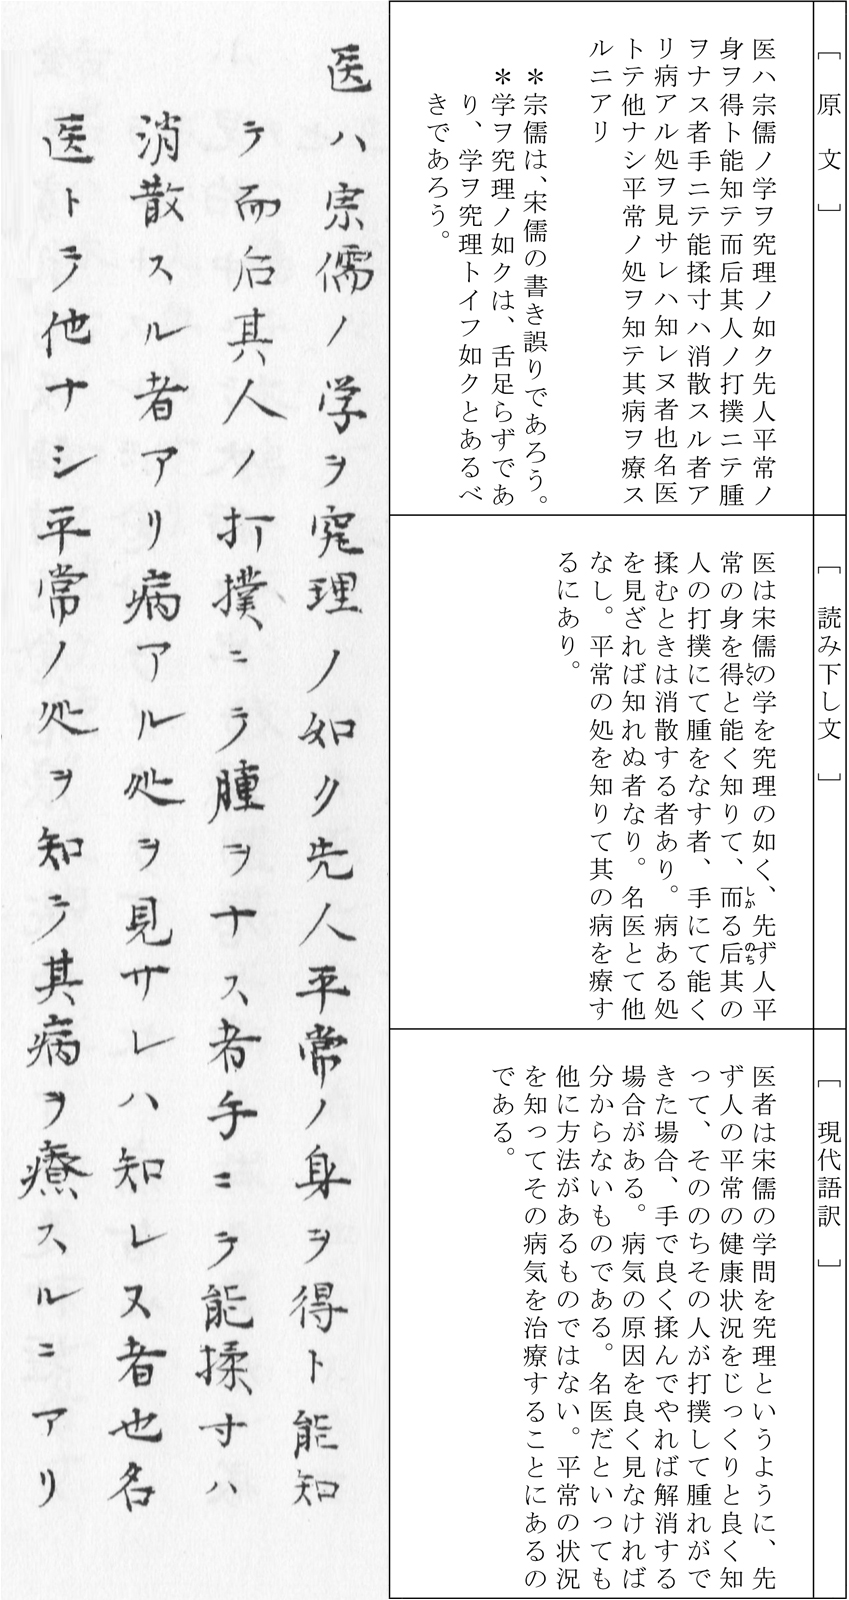 ［原文］
医ハ宗儒ノ学ヲ究理ノ如ク先人平常ノ
身ヲ得ト能知テ而后其人ノ打撲ニテ腫
ヲナス者手ニテ能揉寸ハ消散スル者ア
リ病アル処ヲ見サレハ知レヌ者也名医
トテ他ナシ平常ノ処ヲ知テ其病ヲ療ス
ルニアリ
＊宗儒は、宋儒の書き誤りであろう。
＊学ヲ究理ノ如クは、舌足らずであ
り、学ヲ究理トイフ如クとあるべ
きであろう。
［読み下し文］
医は宋儒の学を究理の如く、先ず人平
常の身を得とくと能く知りて、而しかる后のち其の
人の打撲にて腫をなす者、手にて能く
揉むときは消散する者あり。病ある処
を見ざれば知れぬ者なり。名医とて他
なし。平常の処を知りて其の病を療す
るにあり。
［現代語訳］
医者は宋儒の学問を究理というように、先
ず人の平常の健康状況をじっくりと良く知
って、そののちその人が打撲して腫れがで
きた場合、手で良く揉んでやれば解消する
場合がある。病気の原因を良く見なければ
分からないものである。名医だといっても
他に方法があるものではない。平常の状況
を知ってその病気を治療することにあるの
である。
医ハ宗儒ノ学ヲ究理ノ如ク先人平常ノ身ヲ得ト能知
テ而后其人ノ打撲ニテ腫ヲナス者手ニテ能揉寸ハ
消散スル者アリ病アル処ヲ見サレハ知レヌ者也名
医トテ他ナシ平常ノ処ヲ知テ其病ヲ療スルニアリ